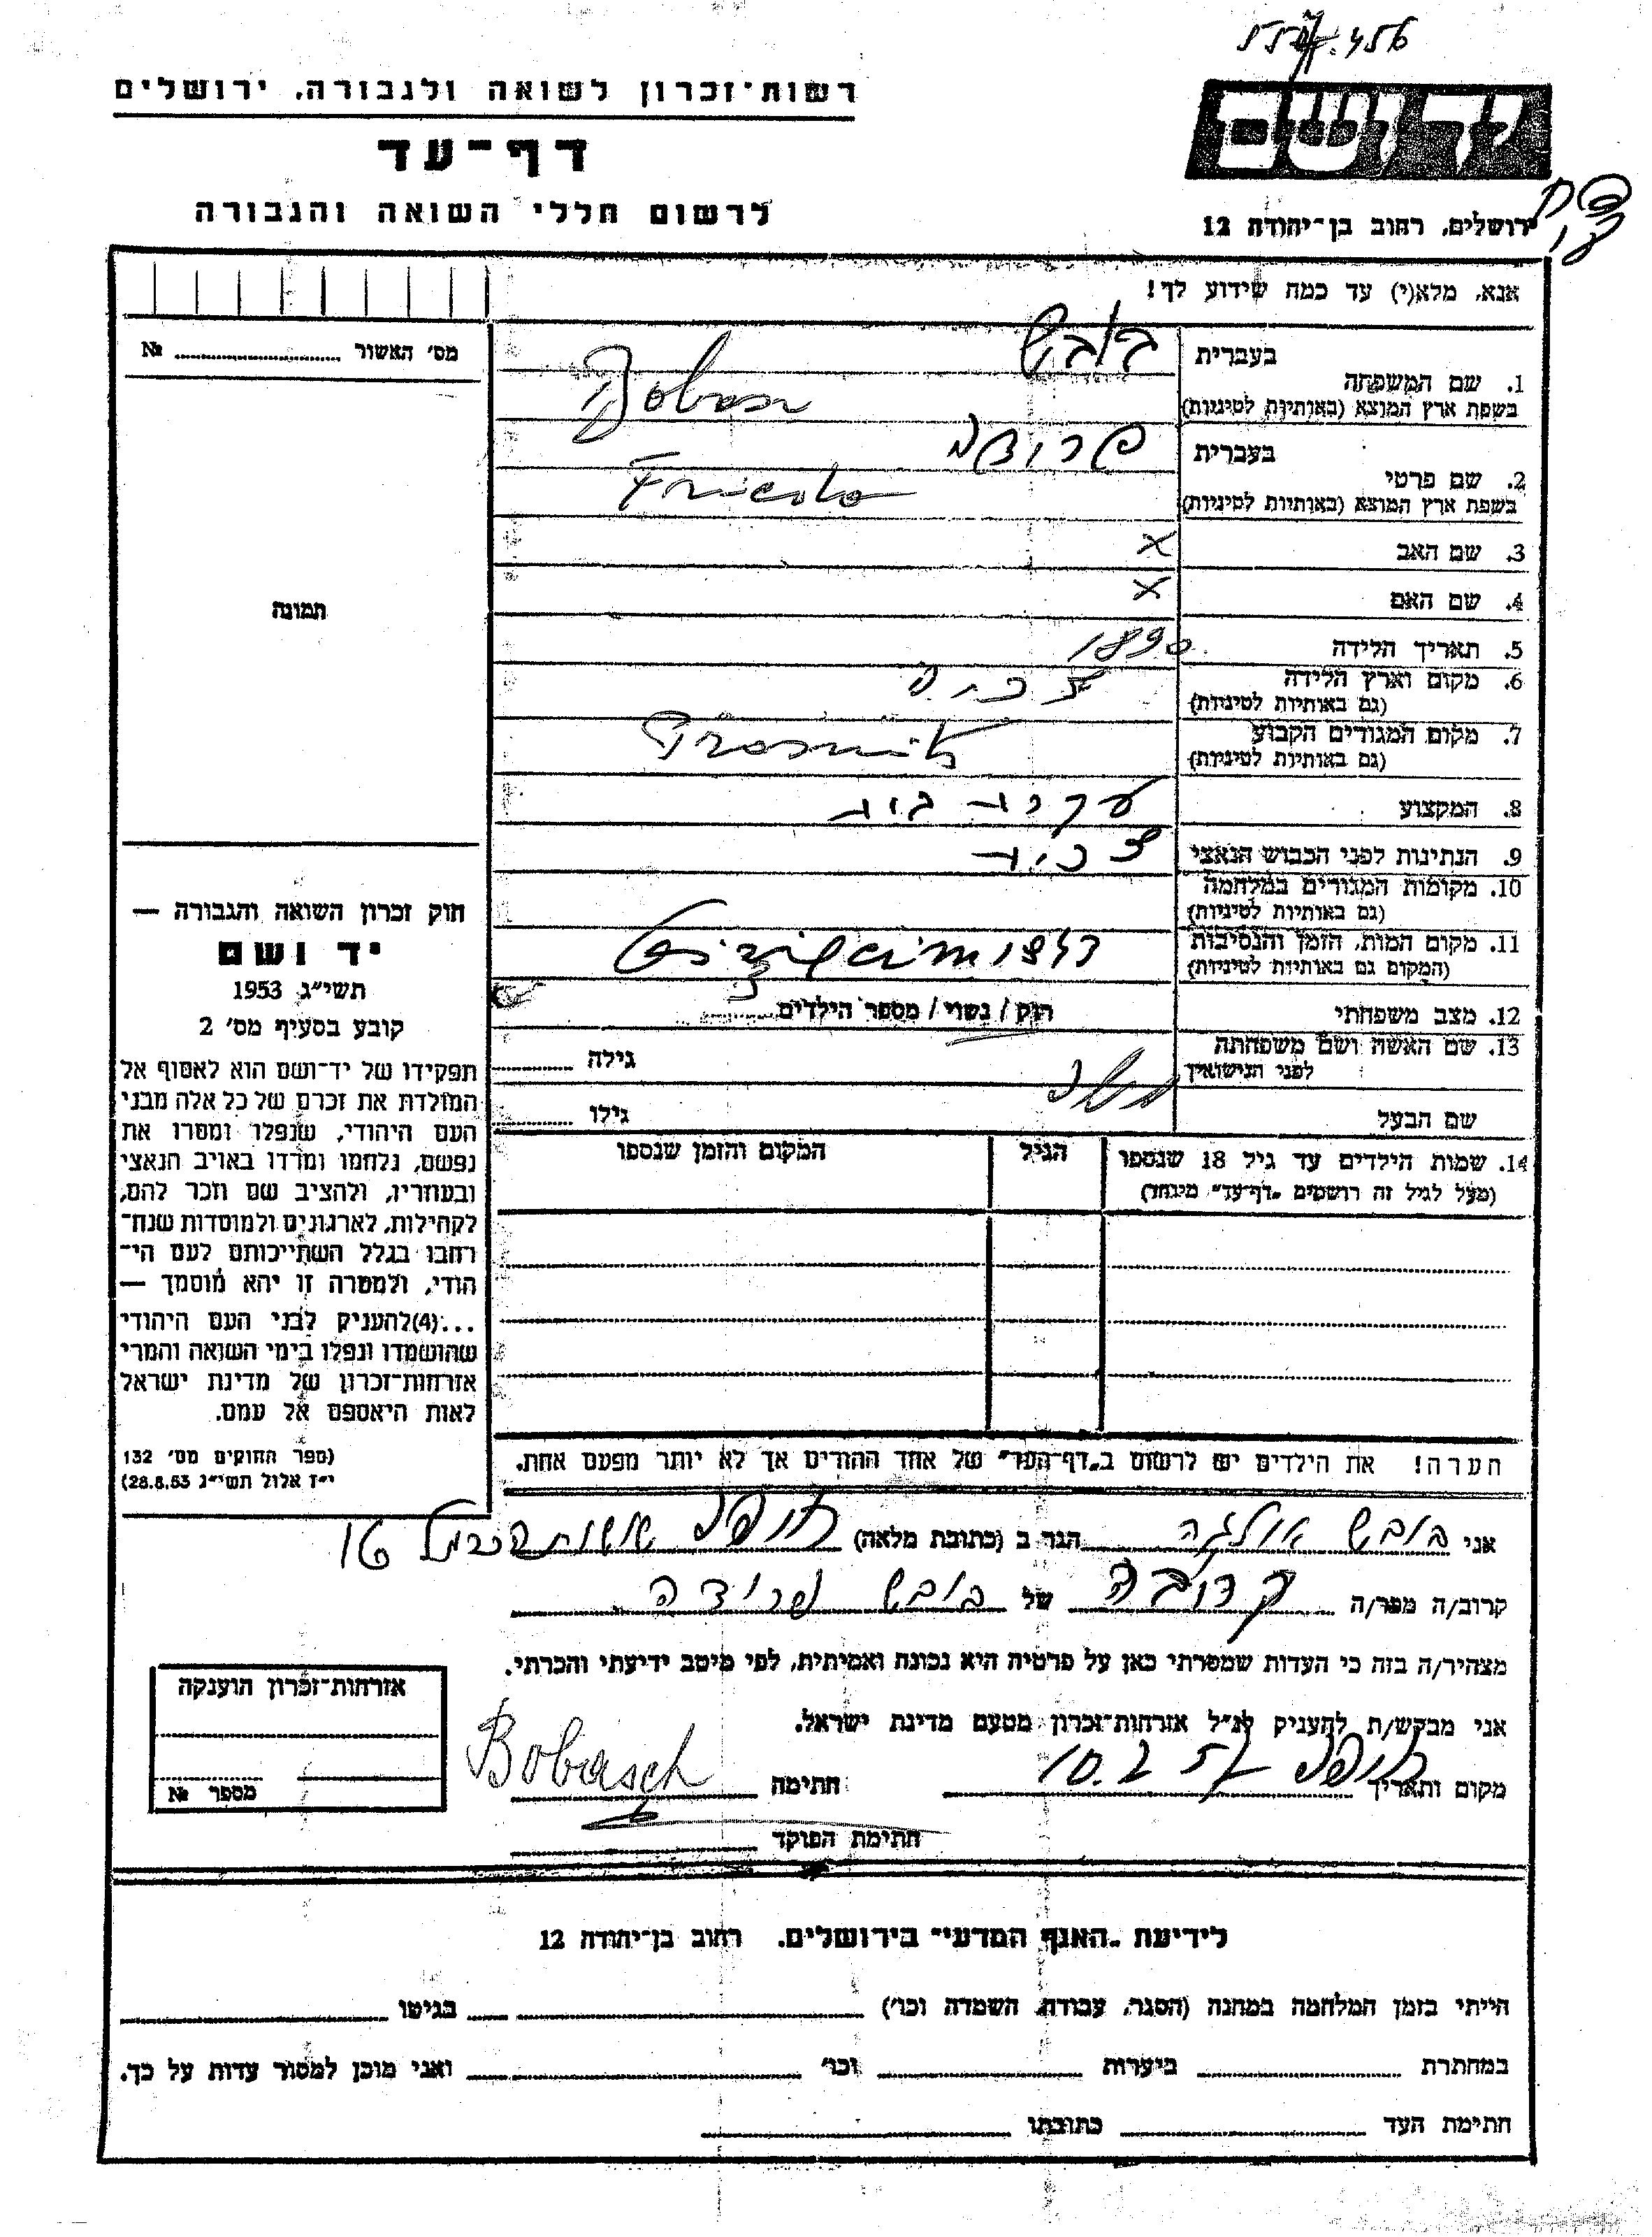 רשות־זכרון לשואה ולגבורה, ירושלים
דף־עד
לרשום חללי השואה והגבורה
יד ושם
ירושלים, רחוב בן־יהודה 12
אנא, מלא(י) עד כמה שידוע לך!
מס' האשור № 
תמונה
1. שם המשפחה
בעברית בובש
בשפת ארץ המוצא (באותיות לטיניות)
2. שם פרטי
בעברית
בשפת ארץ המוצא (באותיות לטיניות)
3. שם האב x
4. שם האם x
5. תאריך הלידה 1890
6. מקום וארץ הלידה
(גם באותיות לטיניות)
7. מקום המגורים הקבוע
(גם באותיות לטיניות) Prosnitz
8. המקצוע עקרת בית
9. הנתינות לפני הכבוש הנאצי צכית
10. מקומות המגורים במלחמה
(גם באותיות לטיניות)
11. מקום המות, הזמן והנסיבות
(המקום גם באותיות לטיניות)
12. מצב משפחתי רוק / נשוי / מספר הילדים
13. שם האשה ושם משפחתה
לפני הנישואין גילה
שם הבעל גילו
14. שמות הילדים עד גיל 18 שנספו הגיל המקום והזמן שנספו
(מעל לגיל זה רושמים „דף־עד" מיוחד)
הערה! את הילדים יש לרשום ב„דף־העד" של אחד ההורים אך לא יותר מפעם אחת.
חוק זכרון השואה והגבורה —
יד ושם
תשי"ג 1953
קובע בסעיף מס' 2
תפקידו של יד־ושם הוא לאסוף אל
המולדת את זכרם של כל אלה מבני
העם היהודי, שנפלו ומסרו את
נפשם, נלחמו ומרדו באויב הנאצי
ובעוזריו, ולהציב שם וזכר להם,
לקהילות, לארגונים ולמוסדות שנח־
רחבו בגלל השתייכותם לעם הי־
הודי, ולמטרה זו יהא מוסמך —
...(4)להעניק לבני העם היהודי
שהושמדו ונפלו בימי השואה והמרי
אזרחות־זכרון של מדינת ישראל
לאות היאספם אל עמם.
(ספר החוקים מס' 132
י"ז אלול תשי"ג 28.8.53)
אני בובש אולגה הגר ב (כתובת מלאה) חיפה 16
קרוב/ה מפר/ה קרובה של בובש פרידה
מצהיר/ה בזה כי העדות שמסרתי כאן על פרטיה היא נכונה ואמיתית, לפי מיטב ידיעתי והכרתי.
אני מבקש/ת להעניק לנ"ל אזרחות־זכרון מטעם מדינת ישראל.
מקום ותאריך חיפה 10.2.57 חתימה Bobasch
חתימת הפוקד
אזרחות־זכרון הוענקה
מספר №
לידיעת „האגף המדעי" בירושלים, רחוב בן־יהודה 12
הייתי בזמן המלחמה במחנה (הסגר, עבודה, השמדה וכו') בגיטו
במחתרת ביערות וכו' ואני מוכן למסור עדות על כך.
חתימת העד כתובתו